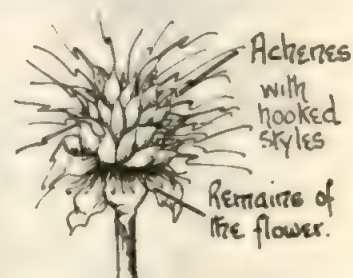 Achenes
with
hooked
styles
Remains of
the flower.